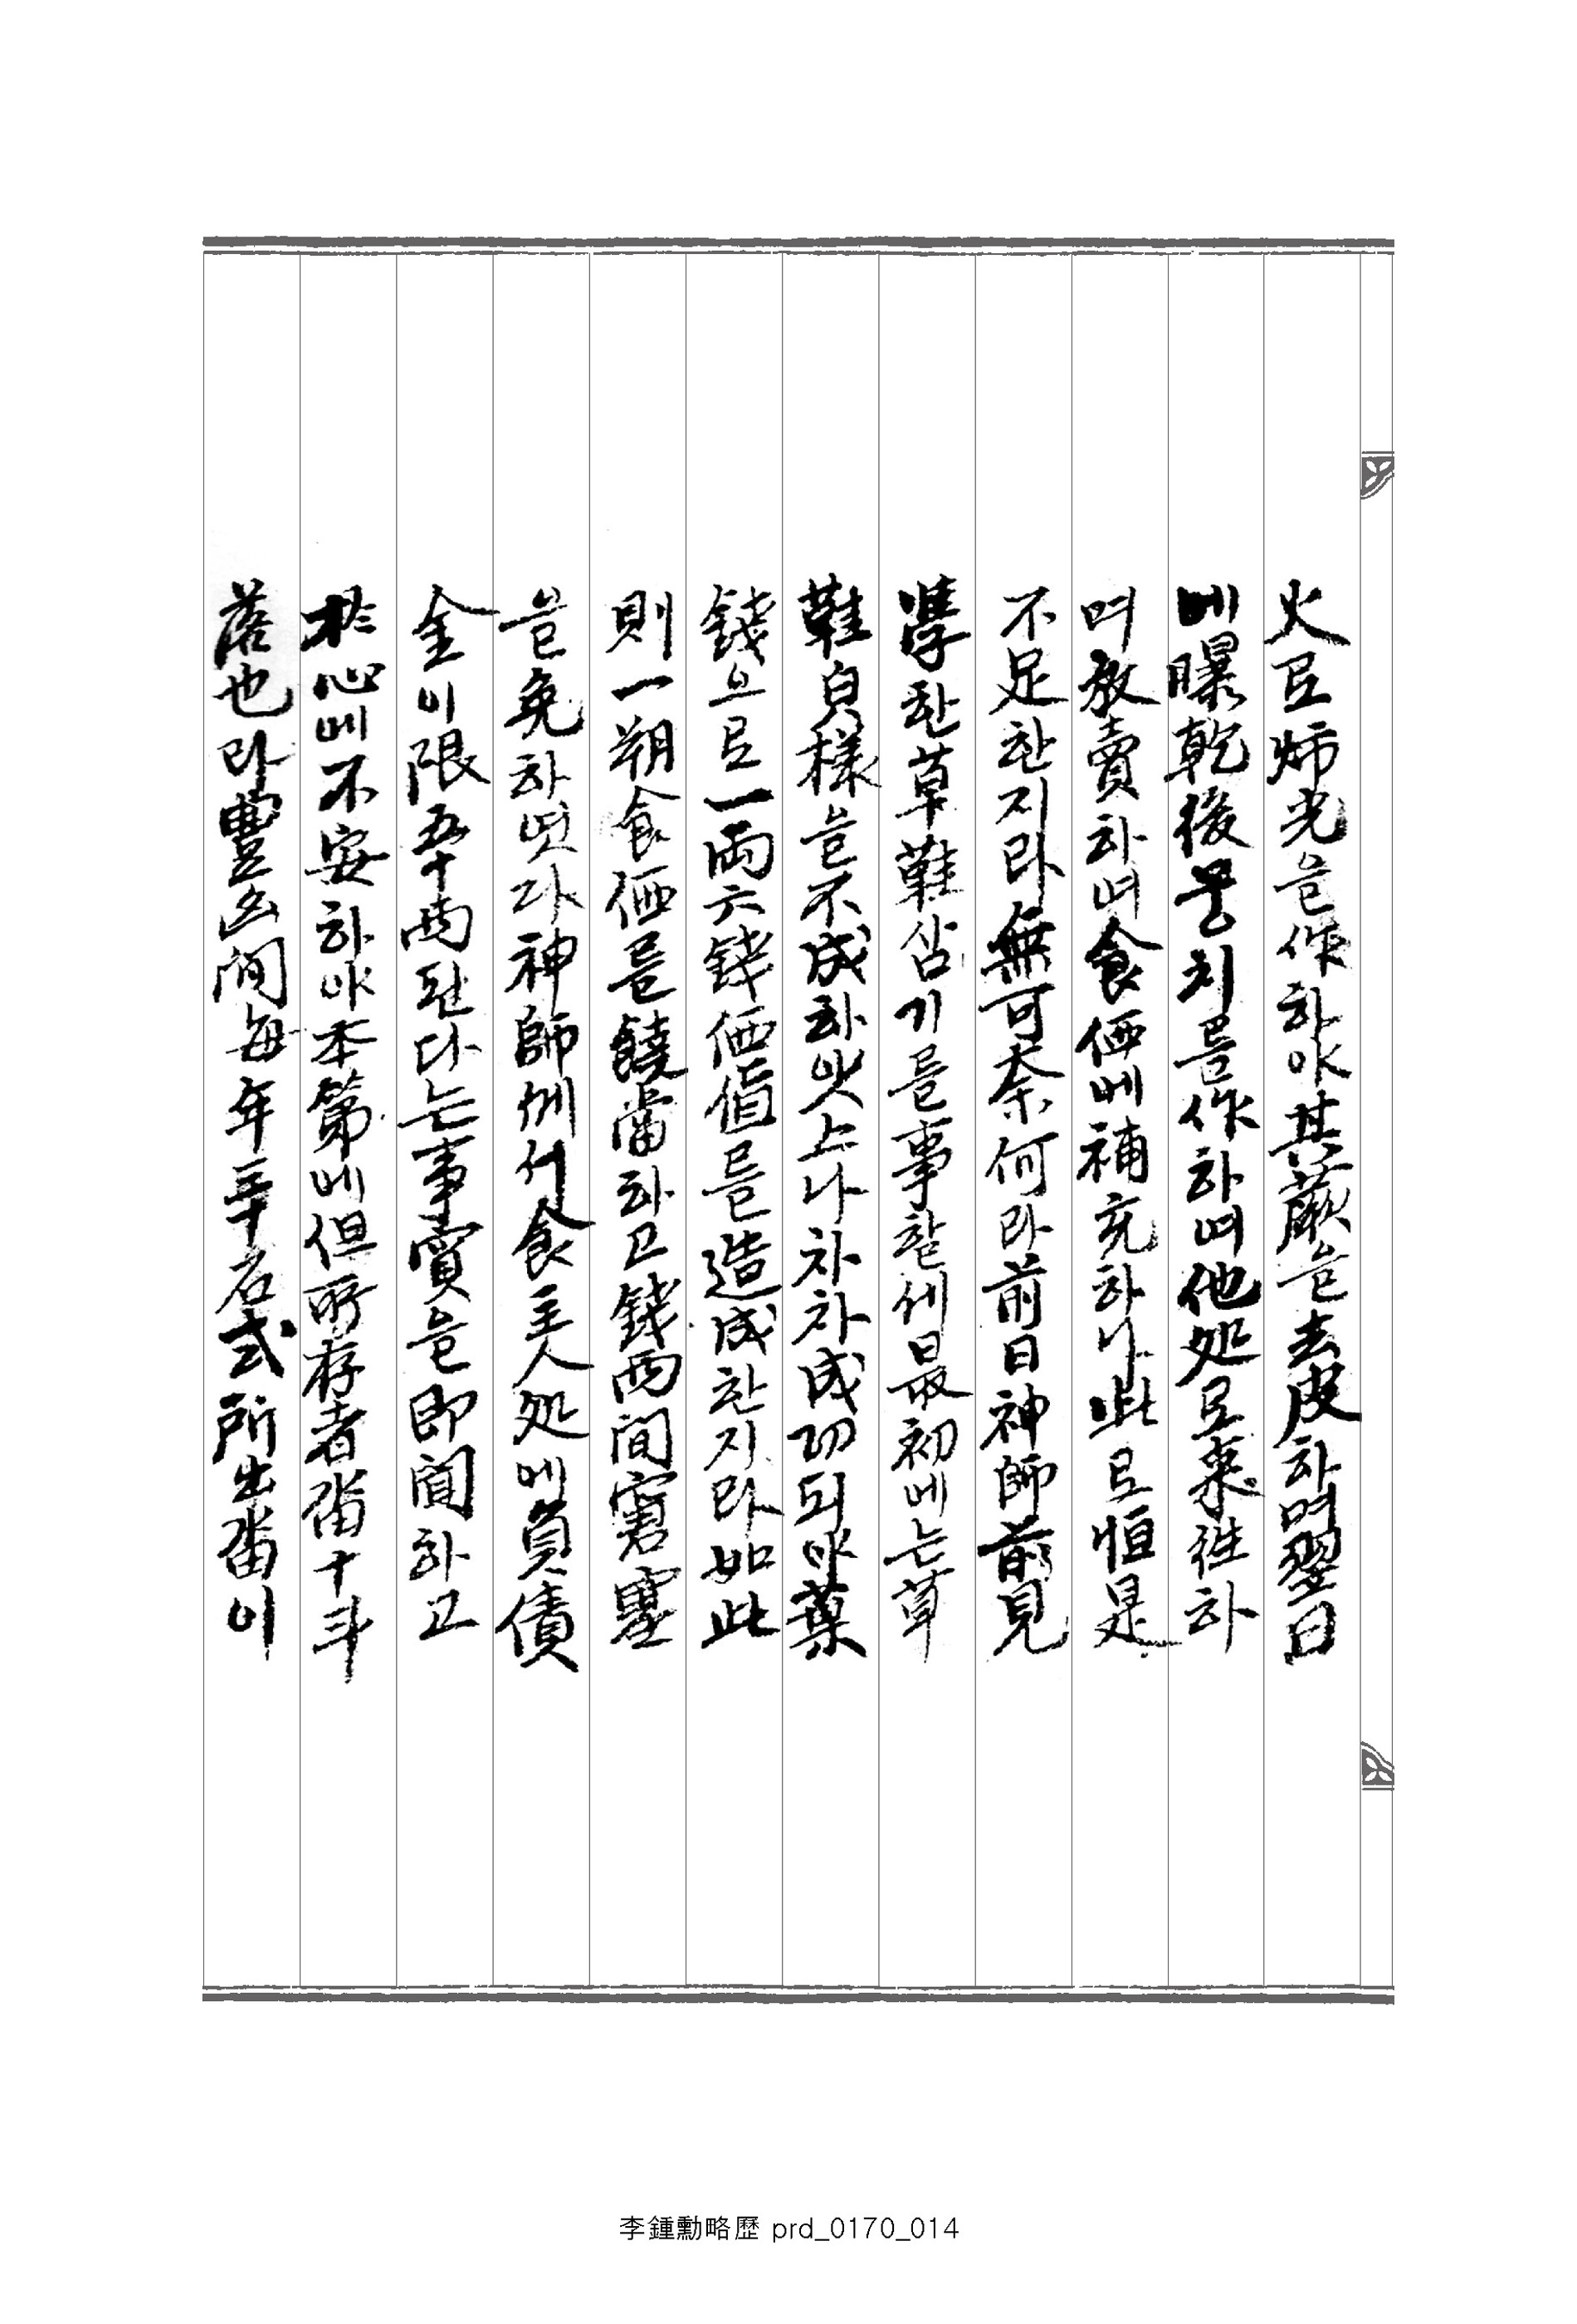 火로 炳光을 作하야 其蕨을 去皮하며 翌日
에 曝乾後 뭉치를 作하며 他処로 来往하
며 放賣하며 食価에 補充하니 此로 恒是
不足한지라 無可奈何라 前日 神師前 見
學한 草鞋 삼기를 事할세 最初에는 草
鞋 貝樣을 不成하얏스나 차차 成功되야 葉
錢으로 一両六錢 価値를 造成한지라 如此
則 一朔食価를 饒當하고 錢両間 窘塞
을 免하엿다가 神師께서 食主人処에 負債
金이 限五十両된다는 事實을 即聞하고
於心에 不安하야 本第에 但所存者 畓十斗
落也라 豐凶間 每年 三十石式 所出畓이
李鍾勳略歷 prd_0170_014